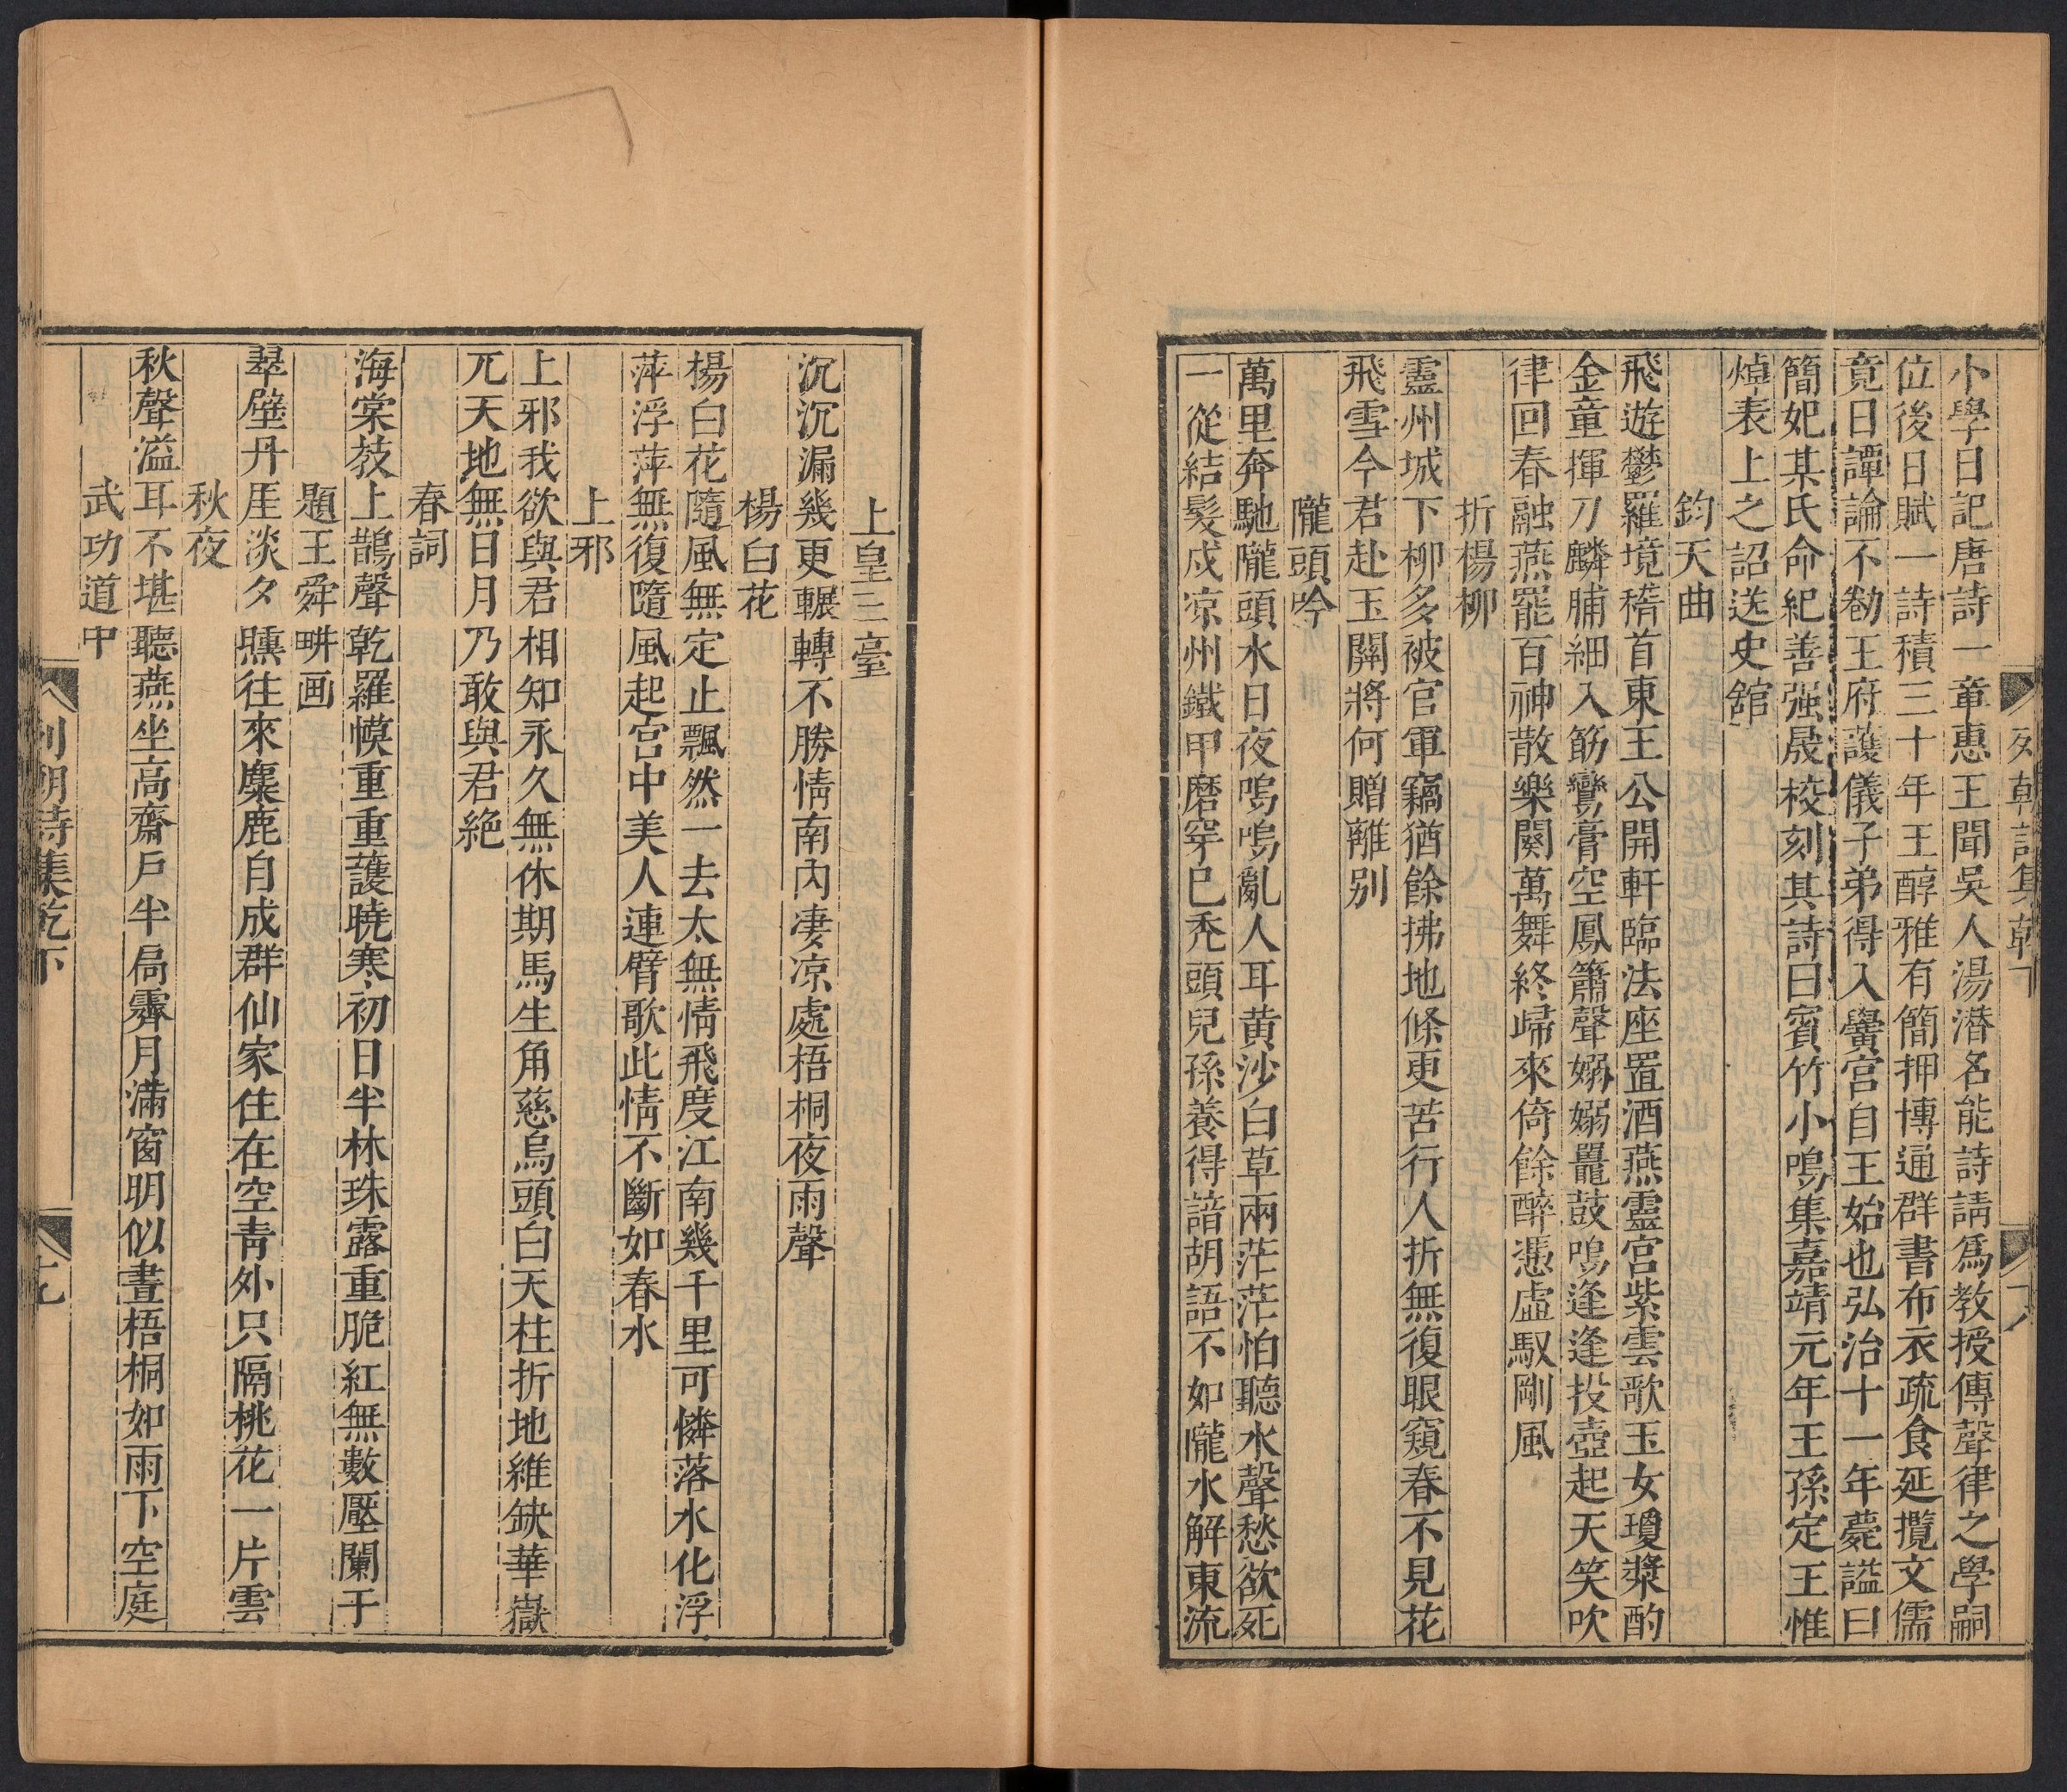 列朝詩集乾下 十八
小學日記唐詩一章惠王聞吳人湯潜名能詩請爲教授傳聲律之學嗣
位後日賦一詩積三十年王醇雅有簡押博通群書布衣疏食延攬文儒
竟日譚論不勌王府護儀子弟得入黌宮自王始也弘治十一年薨謚曰
簡妃某氏命紀善强晟校刻其詩曰賓竹小鳴集嘉靖元年王孫定王惟
焯表上之詔送史舘
鈞天曲
飛遊鬱羅境稽首東王公開軒臨法座置酒燕靈宮紫雲歌玉女瓊漿酌
金童揮刀麟脯細入筯鸞膏空鳳簫聲嫋嫋鼉鼓鳴逢逢投壺起天笑吹
律回春融燕罷百神散樂闋萬舞終歸來倚餘醉憑虛馭剛風
折楊柳
靈州城下柳多被官軍竊猶餘拂地條更苦行人折無復眼窺春不見花
飛雪今君赴玉關將何贈離别
隴頭吟
萬里奔馳隴頭水日夜鳴鳴亂人耳黄沙白草兩茫茫怕聽水聲愁欲死
一從結髮戍凉州鐵甲磨穿已秃頭兒孫養得諳胡語不如隴水解東流
上皇三臺
沉沉漏幾更輾轉不勝情南內凄凉處梧桐夜雨聲
楊白花
楊白花隨風無定止飄然一去太無情飛度江南幾千里可憐落水化浮
萍浮萍無復隨風起宮中美人連臂歌此情不斷如春水
上邪
上邪我欲與君相知永久無休期馬生角慈烏頭白天柱折地維缺華嶽
兀天地無日月乃敢與君絶
春詞
海棠枝上鵲聲乾羅幙重重護曉寒初日半林珠露重脆紅無數壓闌干
題王舜畊画
翠壁丹厓淡夕曛往來麋鹿自成群仙家住在空青外只隔桃花一片雲
秋夜
秋聲溢耳不堪聽燕坐高齋戶半扃霽月滿窗明似晝梧桐如雨下空庭
武功道中
列朝詩集乾下 十九